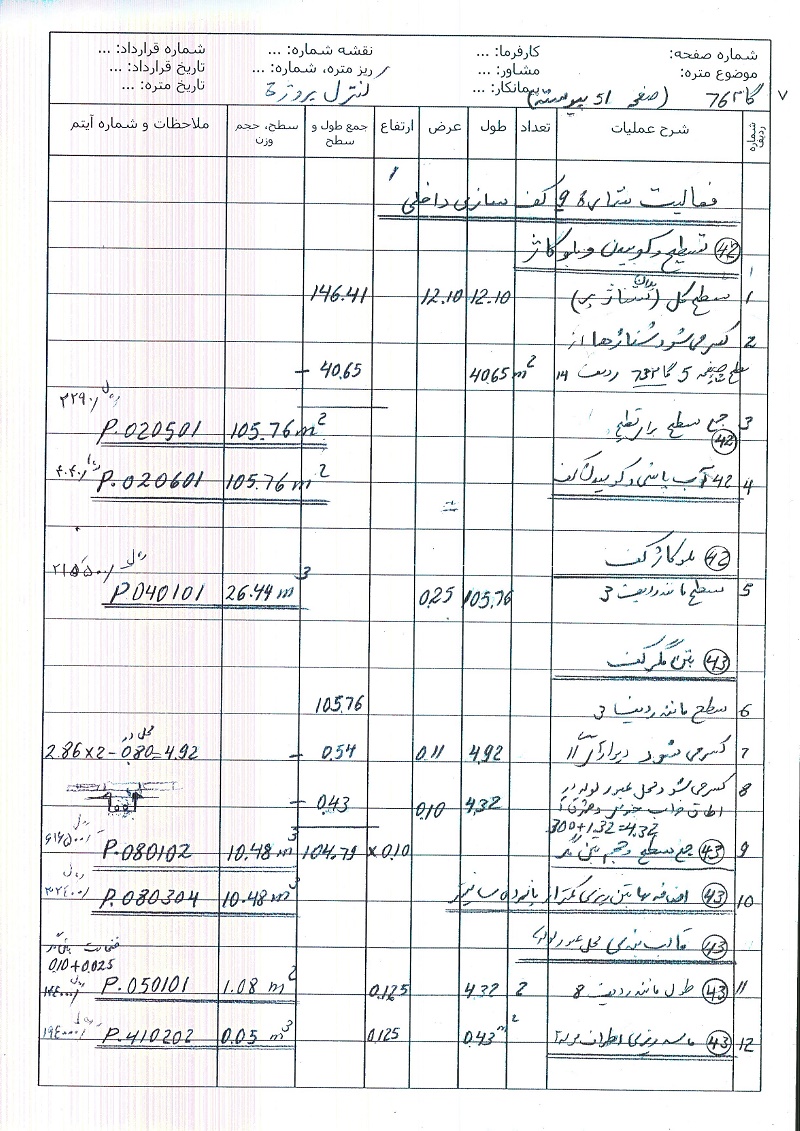 شماره صفحه: کارفرما: ... نقشه شماره: ... شماره قرارداد: ...
موضوع متره: مشاور: ... ریز متره، شماره: ... تاریخ قرارداد: ...
پیمانکار: ... تاریخ متره: ...
763 (صفحه 51 پیوسته) کنترل پروژه
۷
شماره ردیف شرح عملیات تعداد طول عرض ارتفاع جمع طول و سطح سطح، حجم وزن ملاحظات و شماره آیتم
فعالیت شماره 9 کف سازی داخلی
42 تسطیح و کوبیدن و بلوکاژ
1 سطح کل 12.10 12.10 146.41
2 کسر می شود شناژها از
سطح صفحه 5 ردیف 14 40.65 m2 - 40.65
3 جمع سطح برای تسطیح 105.76 m2 P.020501 ۳۲۹۰/ ریال
42
4 42 آب پاشی و کوبیدن کف 105.76 m2 P.020601 ۴۰۴۰/ ریال
42 بلوکاژ کف
5 سطح مانند ردیف 3 105.76 0.25 26.44 m3 P.040101 ۲۱۵۵۰۰/ ریال
43 بتن مگر کف
6 سطح مانند ردیف 3 105.76
7 کسر می شود دیوار 11 4.92 0.11 - 0.54 2.86x2-0.80=4.92 محل در
8 کسر می شود محل عبور لوله در
اطاق خواب 4.32 0.10 - 0.43
300+1.32=4.32
9 43 جمع سطح و حجم بتن مگر x0.10 104.79 10.48 m3 P.080102 ریال
10 43 اضافه بها بتن ریزی کمتر از پانزده سانتیمتر 10.48 m3 P.080304 ریال
43 قالب بندی محل عبور لوله
ضخامت بتن مگر
0.10+0.025
11 43 طول مانند ردیف 8 2 4.32 0.125 1.08 m2 P.050101 ریال
12 43 ماسه ریزی اطراف لوله 0.43 m2 0.125 0.05 m3 P.410202 ۱۹۴۰۰۰/ ریال